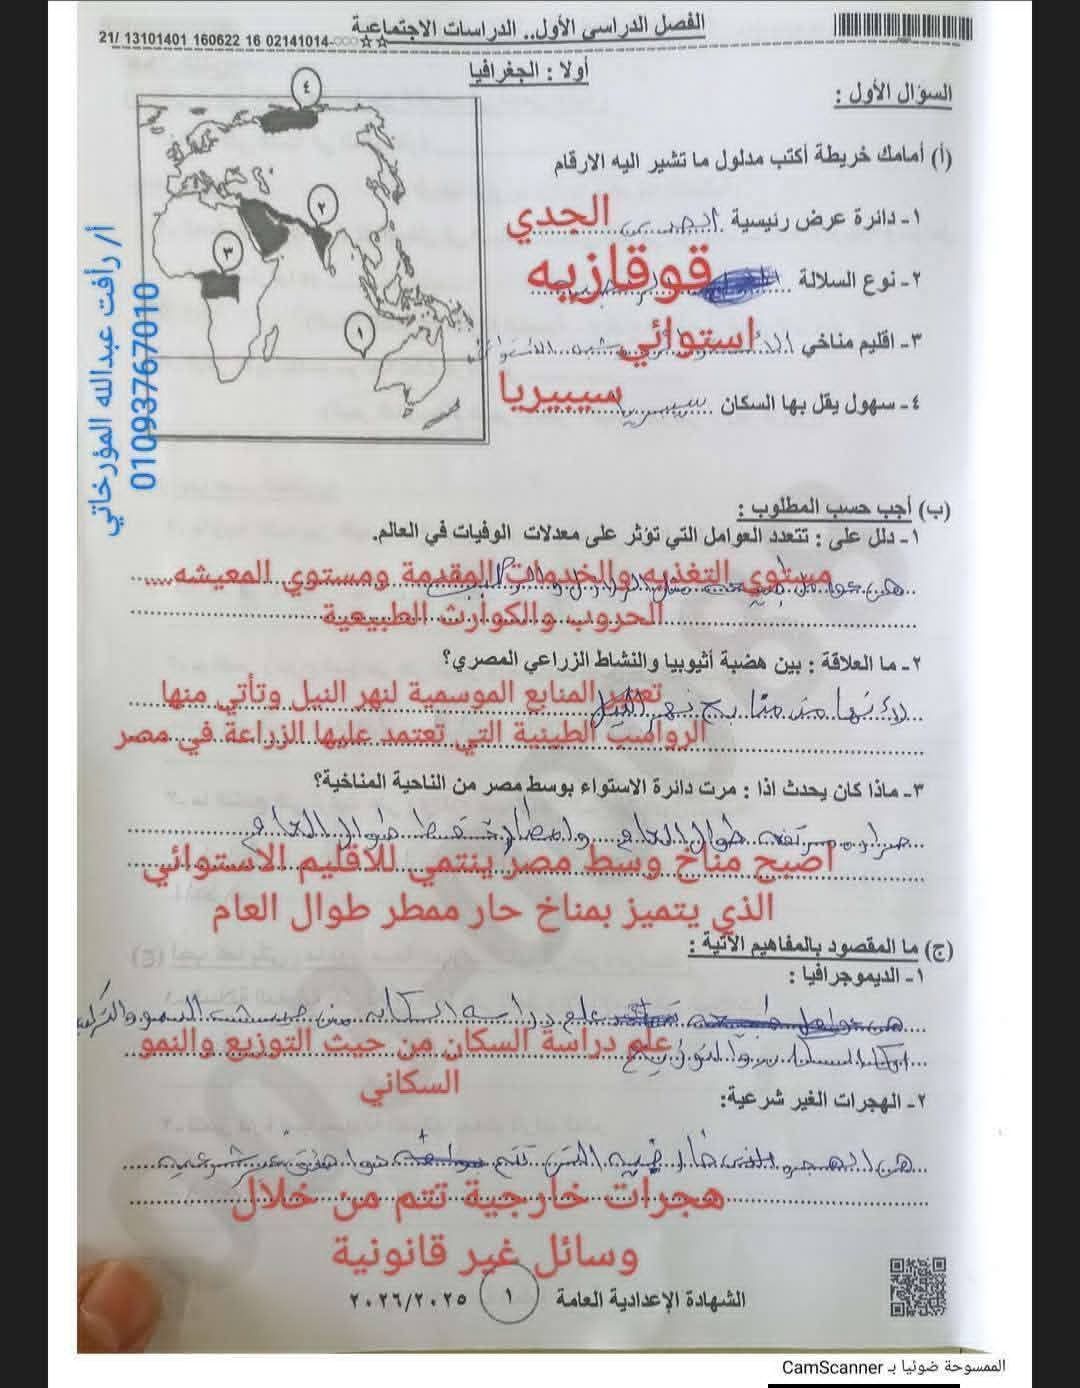 الفصل الدراسي الأول.. الدراسات الاجتماعية
21/ 13101401 160622 16 02141014-○○○☆☆
أولا : الجغرافيا
السؤال الأول :
(أ) أمامك خريطة أكتب مدلول ما تشير اليه الارقام
٤
٢
٣
١
١- دائرة عرض رئيسية الجدي
٢- نوع السلالة قوقازيه
٣- اقليم مناخي استوائي
٤- سهول يقل بها السكان سيبيريا سيبيريا
أ/ رأفت عبدالله المؤرخاتي
01093767010
(ب) أجب حسب المطلوب :
١- دلل على : تتعدد العوامل التي تؤثر على معدلات الوفيات في العالم.
مستوي التغذيه والخدمات المقدمة ومستوي المعيشه
الحروب والكوارث الطبيعية
٢- ما العلاقة : بين هضبة أثيوبيا والنشاط الزراعي المصري؟
لأنها من منابع نهر النيل
تعتبر المنابع الموسمية لنهر النيل وتأتي منها
الرواسب الطينية التي تعتمد عليها الزراعة في مصر
٣- ماذا كان يحدث اذا : مرت دائرة الاستواء بوسط مصر من الناحية المناخية؟
حراره مرتفعه طوال العام وامطار تسقط طوال العام
اصبح مناخ وسط مصر ينتمي للاقليم الاستوائي
الذي يتميز بمناخ حار ممطر طوال العام
(ج) ما المقصود بالمفاهيم الآتية :
١- الديموجرافيا :
علم دراسة السكان من حيث النمو والتراكيب
علم دراسة السكان من حيث التوزيع والنمو
السكاني
٢- الهجرات الغير شرعية:
هي الهجره الخارجيه التي تتم غير شرعيه
هجرات خارجية تتم من خلال
وسائل غير قانونية
الشهادة الإعدادية العامة ١ ٢٠٢٦/٢٠٢٥
الممسوحة ضوئيا بـ CamScanner